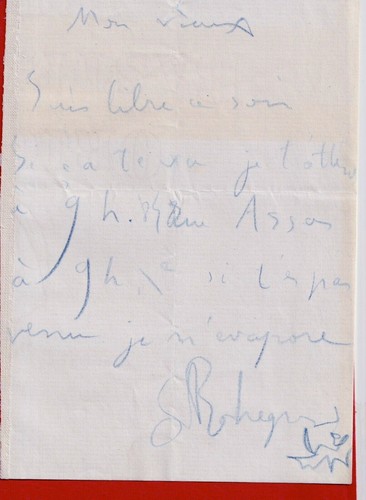 Mon vieux
Suis libre ce soir
Si ça te va je t'attends
à 9h. Rue Assas
à 9h ¼ si t'es pas
venu je m'évapore